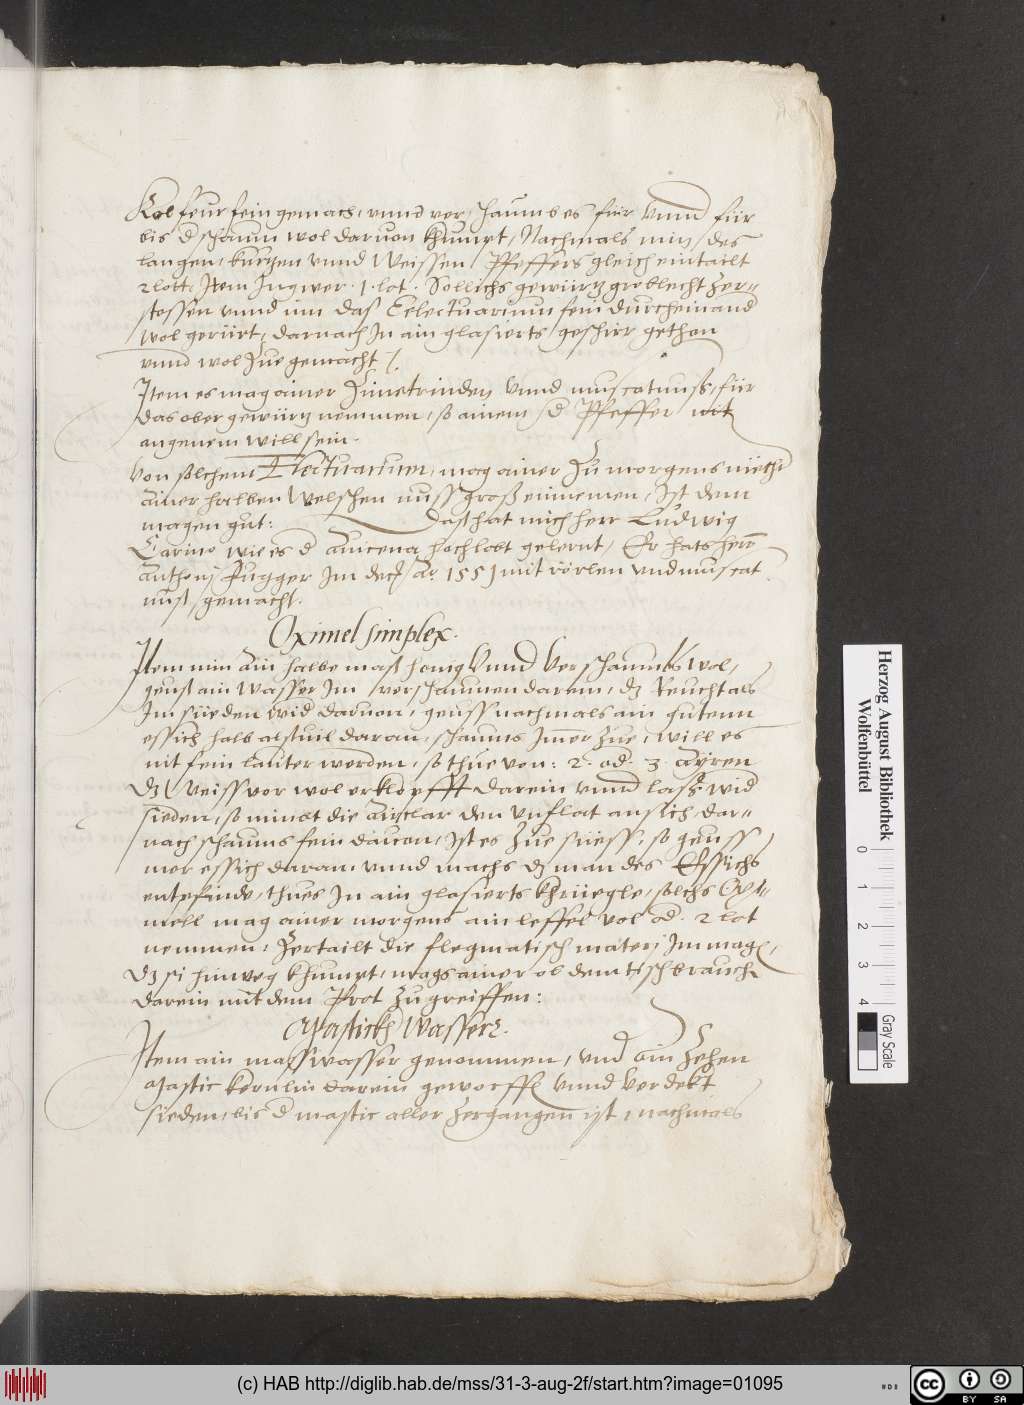 Kol feur fein gemach, vnnd verschaumb es für vnnd für
bis d schaum wol daruon khumpt, Nachmals nim des
langen, kurtzen vnnd Weissen Pfeffers gleich eintailt
2 lott, Item Ingwer .1. lot. Sollichs gewürtz groblecht zer-
stossen vnnd inn das Eelectuarium fein durcheinand
wol gerürt, darnach In ain glasierts geschirr gethon
vnnd wol zue gemacht /.
Item es mag ainer Zimetrinden vnnd muscatnuss, für
das ober gewürtz nemmen, so ainem d Pfeffer nit
angenem will sein.
Von solchem Electuarium, mag ainer Zu morgens
ainer halben Welschen nuss gross einnemen, Ist dem
magen gut: Das hat mich herr Ludwig
Carino wie es d auicena hoch lobt gelernt, Er hats herr
anthonj fugger Im 1551 mit rörlen vnd muscat
nusst gemacht.
Oximel simplex.
Item nim ain halbe mass honig vnnd verschaumbs wol,
geuss ain wasser Im verschaumen darein, dz Reucht als
Im sieden wid daruon, geuss nachmals ain gutenn
essich halb alsuil daran, schaums Imer zue, will es
nit fein lauter werden, so thue von: 2. od. 3. ayren
dz Weiss vor wol erklopfft darein vnnd lass wid
sieden, so nimbt die airclar den vnflat an sich, dar-
nach schaums fein dauon, Ist es zue süess, so geuss
mer essich daran vnnd machs dz man des Essichs
entpfinde, thues In ain glasierts khrüegle, solchs Oxi-
mell mag ainer morgens ain leffel vol od. 2 lot
nemmen, Zertailt die flegmatisch materj Im mag,
dz si hinweg khumpt, mags ainer ob dem tisch brauch
darein mit dem Prot zu greiffen:
Mastickh Wasser.
Item ain mass wasser genommen, vnd ain Zehen
Mastic kernlin darein geworffen vnnd verdekt
sieden, bis d mastic aller zergangen ist, nachmals
Herzog August Bibliothek
Wolfenbüttel
0 1 2 3 4
Gray Scale
(c) HAB http://diglib.hab.de/mss/31-3-aug-2f/start.htm?image=01095
cc BY SA